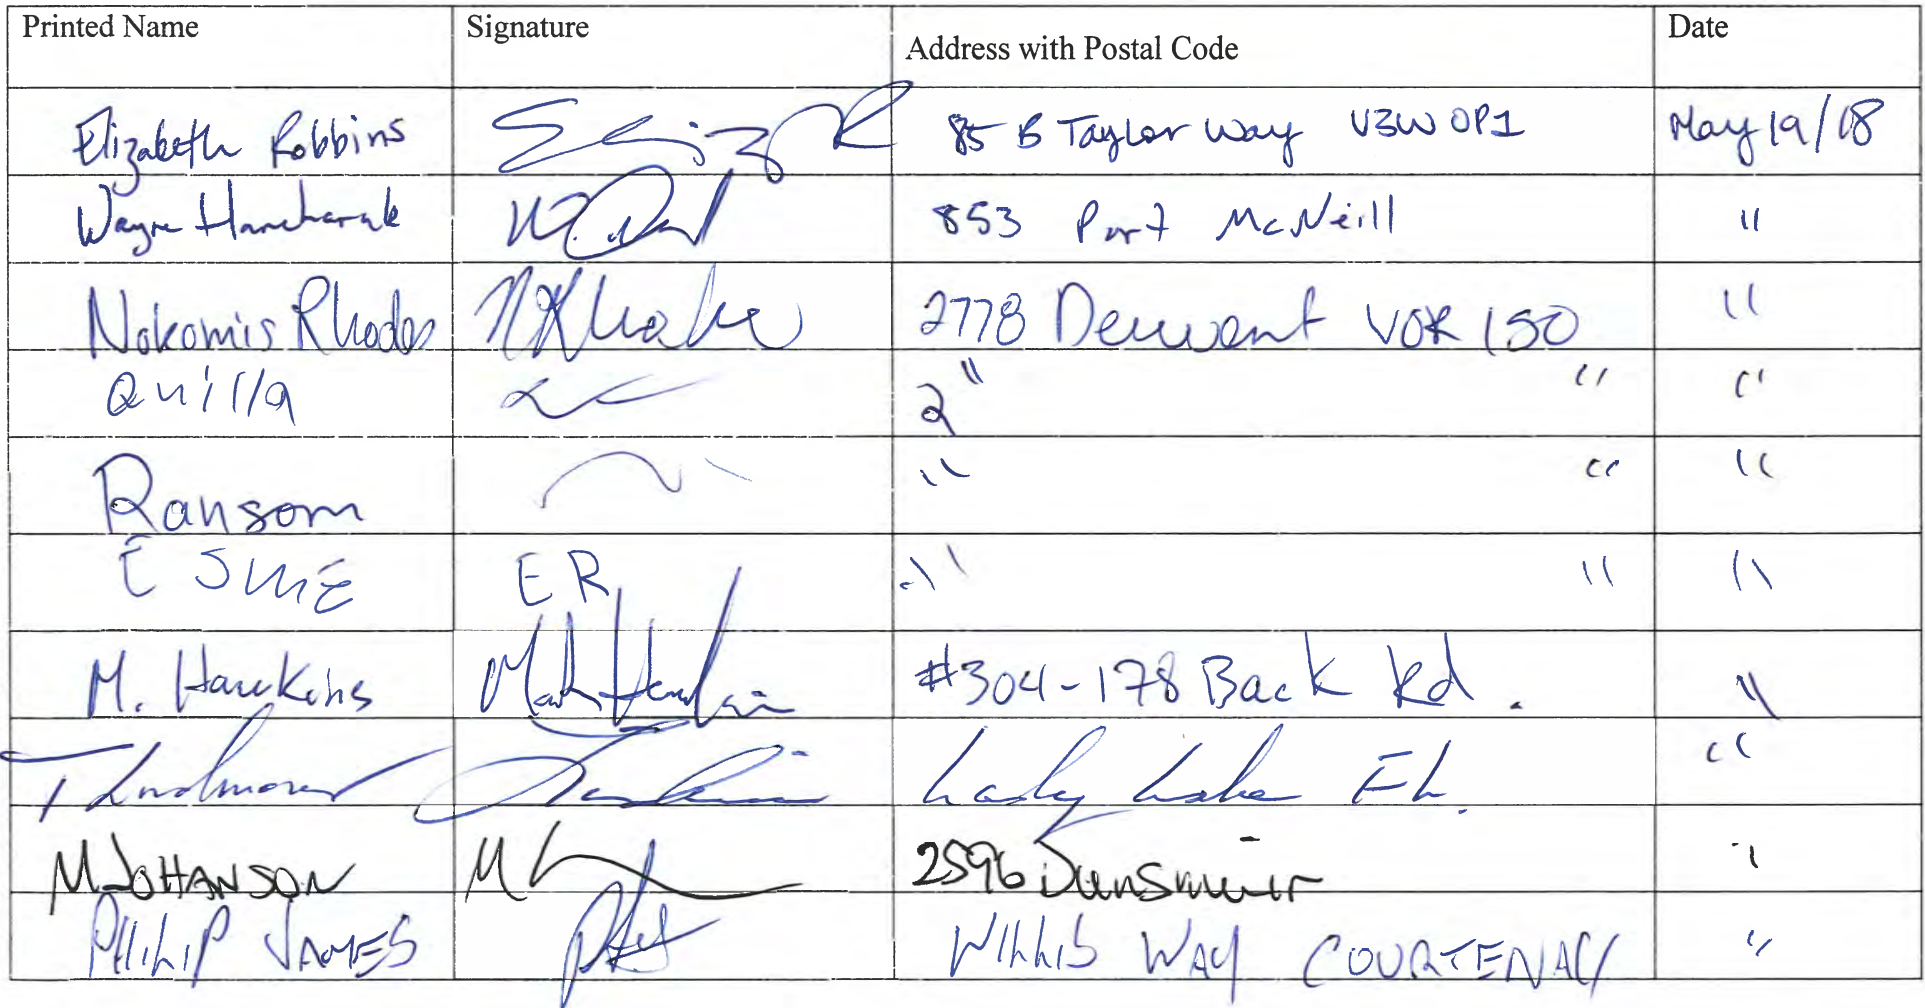 Printed Name Signature Address with Postal Code Date
Elizabeth Robbins 85 B Taylor Way V3W 0P1 May 19/18
Wayne 853 Port McNeill "
Nokomis Rhodes 2778 Derwent V0R 1S0 "
Quilla 2" " "
Ransom " " "
ESME ER " " "
M. Hawkins #304-178 Back Rd. "
T "
M JOHANSON M 2596 Dunsmuir "
PHILIP JAMES WILLIS WAY COURTENAY "